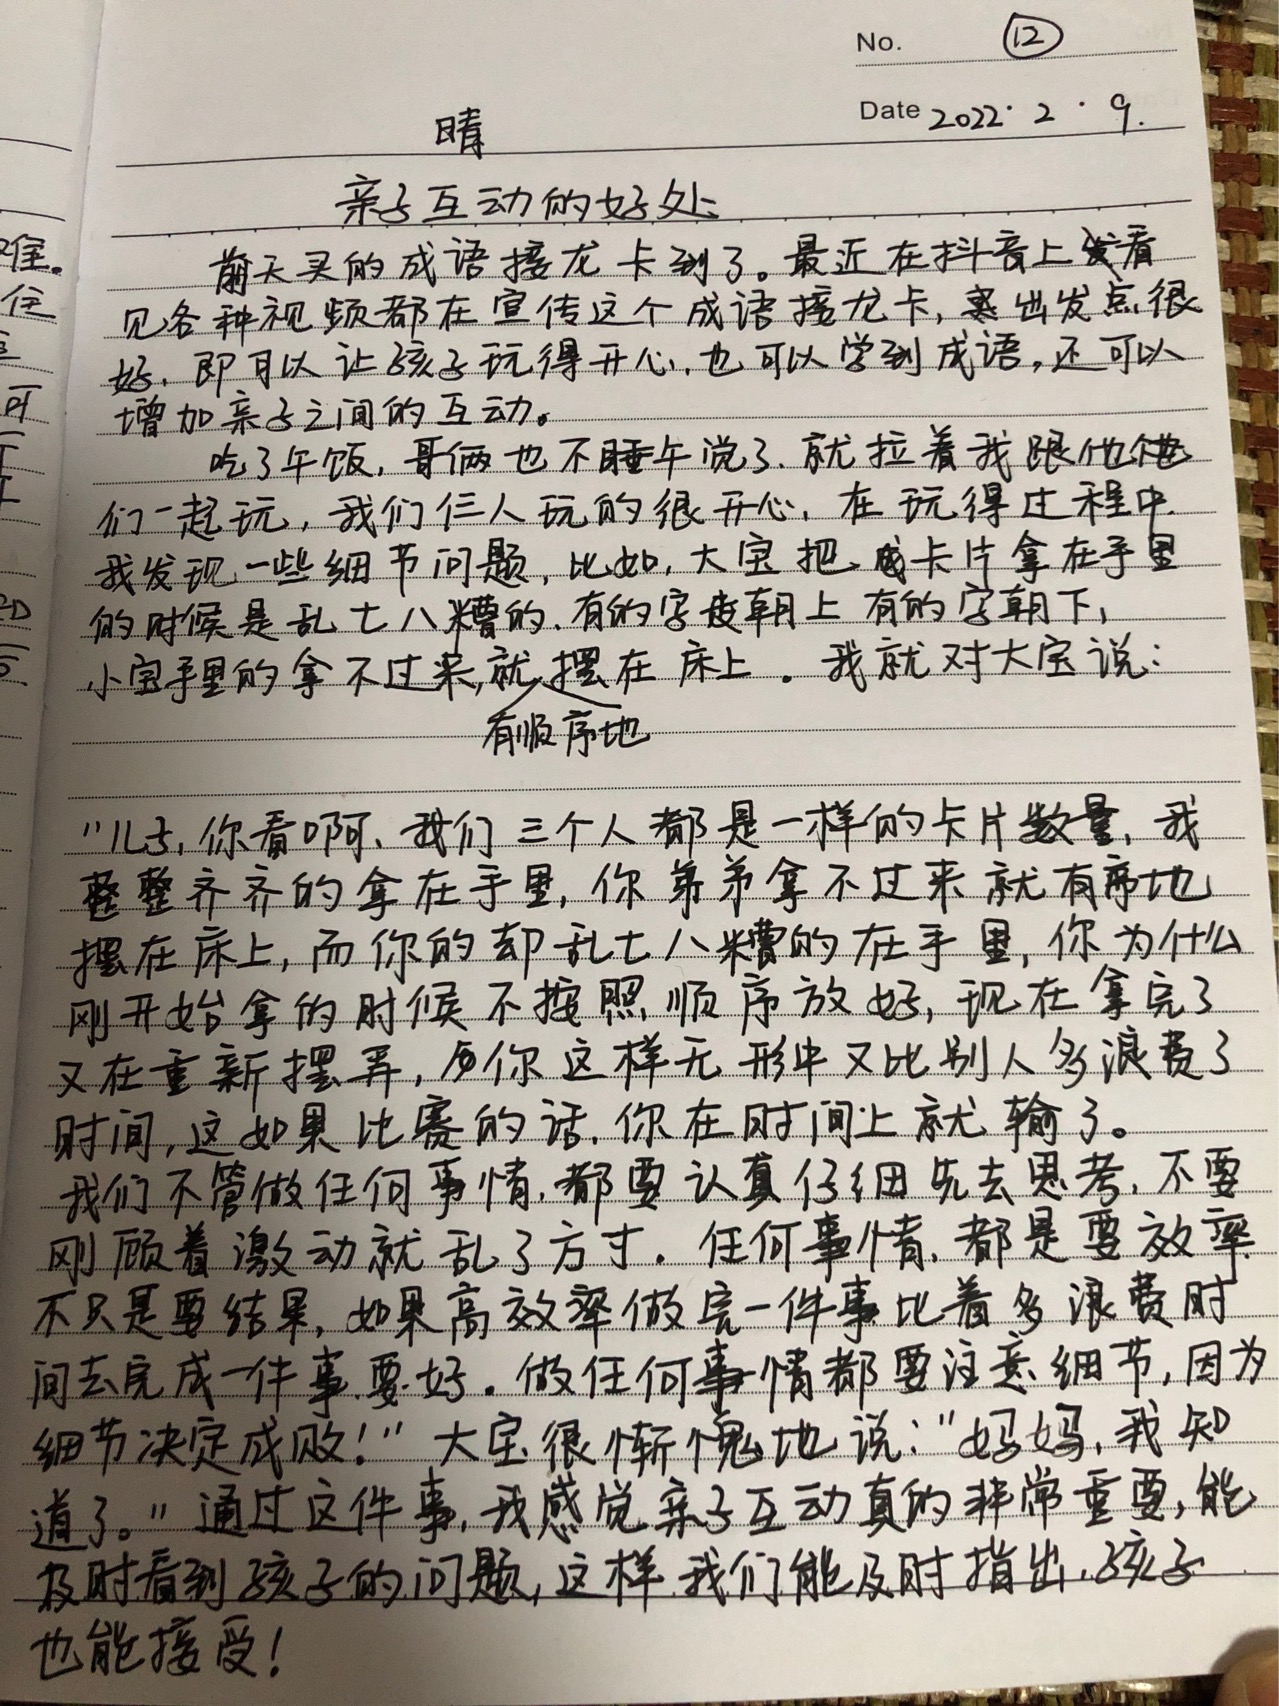 No. ⑫
Date 2022.2.9.
晴
亲子互动的好处
前天买的成语接龙卡到了。最近在抖音上看
见各种视频都在宣传这个成语接龙卡,出发点很
好,即可以让孩子玩得开心,也可以学到成语,还可以
增加亲子之间的互动。
吃了午饭,哥俩也不睡午觉了,就拉着我跟他
们一起玩,我们仨人玩的很开心,在玩得过程中,
我发现一些细节问题,比如,大宝把卡片拿在手里
的时候是乱七八糟的,有的字朝上有的字朝下,
小宝手里的拿不过来,就摆在床上。我就对大宝说:
有顺序地
"儿子,你看啊,我们三个人都是一样的卡片数量,我
整整齐齐的拿在手里,你弟弟拿不过来就有序地
摆在床上,而你的却乱七八糟的在手里,你为什么
刚开始拿的时候不按照顺序放好,现在拿完了
又在重新摆弄,你这样无形中又比别人多浪费了
时间,这如果比赛的话,你在时间上就输了。
我们不管做任何事情,都要认真仔细先去思考,不要
刚顾着激动就乱了方寸。任何事情,都是要效率
不只是要结果,如果高效率做完一件事比着多浪费时
间去完成一件事要好。做任何事情都要注意细节,因为
细节决定成败!"大宝很惭愧地说:"妈妈,我知
道了。"通过这件事,我感觉亲子互动真的非常重要,能
及时看到孩子的问题,这样我们能及时指出,孩子
也能接受!